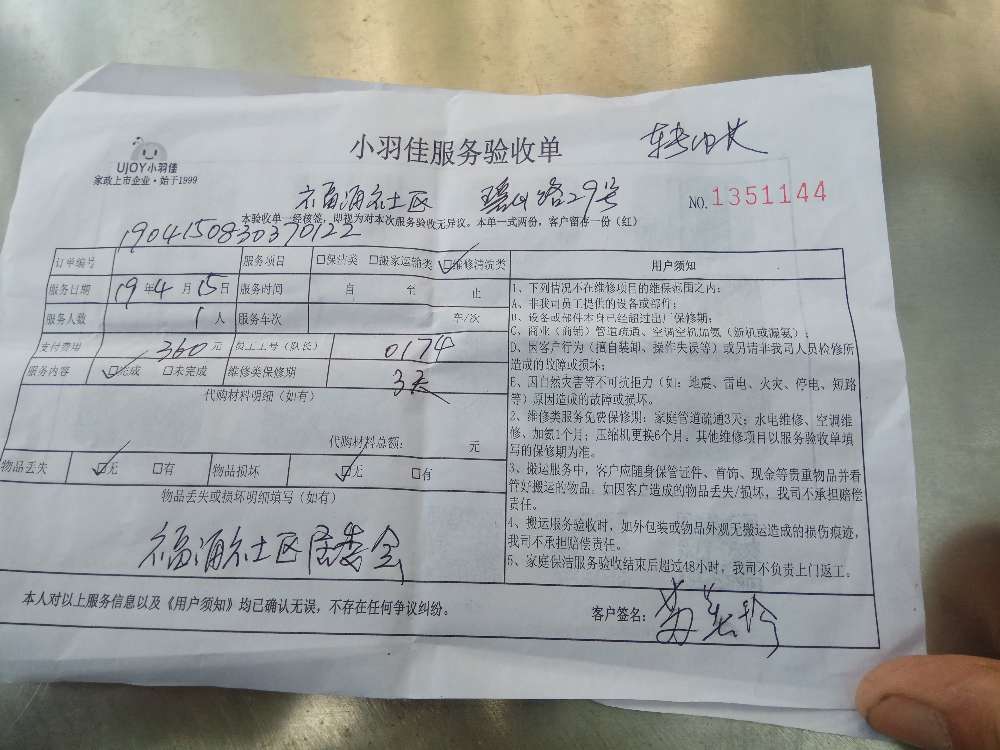 UJOY小羽佳
家政上市企业·始于1999
小羽佳服务验收单
福涌社区 碧山路29号
NO. 1351144
本验收单一经核签，即视为对本次服务验收无异议。本单一式两份，客户留存一份（红）
订单编号 190415083037012​2 服务项目 □保洁类 □搬家运输类 □维修清洗类
服务日期 19年4月15日 服务时间 自 至 止
服务人数 1人 服务车次 车/次
支付费用 360元 员工工号（队长） 0174
服务内容 □完成 □未完成 维修类保修期 3天
代购材料明细（如有）
代购材料总额： 元
物品丢失 □无 □有 物品损坏 □无 □有
物品丢失或损坏明细填写（如有）
福涌社区居委会
用户须知
1、下列情况不在维修项目的维保范围之内：
A、非我司员工提供的设备或部件；
B、设备或部件本身已经超过出厂保修期；
C、商业（商铺）管道疏通、空调空机加氨（新机或漏氨）；
D、因客户行为（擅自装卸、操作失误等）或另请非我司人员检修所
造成的故障或损坏；
E、因自然灾害等不可抗拒力（如：地震、雷电、火灾、停电、短路
等）原因造成的故障或损坏。
2、维修类服务免费保修期：家庭管道疏通3天；水电维修、空调维
修、加氨1个月；压缩机更换6个月；其他维修项目以服务验收单填
写的保修期为准。
3、搬运服务中，客户应随身保管证件、首饰、现金等贵重物品并看
管好搬运的物品；如因客户造成的物品丢失/损坏，我司不承担赔偿
责任。
4、搬运服务验收时，如外包装或物品外观无搬运造成的损伤痕迹，
我司不承担赔偿责任。
5、家庭保洁服务验收结束后超过48小时，我司不负责上门返工。
本人对以上服务信息以及《用户须知》均已确认无误，不存在任何争议纠纷。
客户签名：